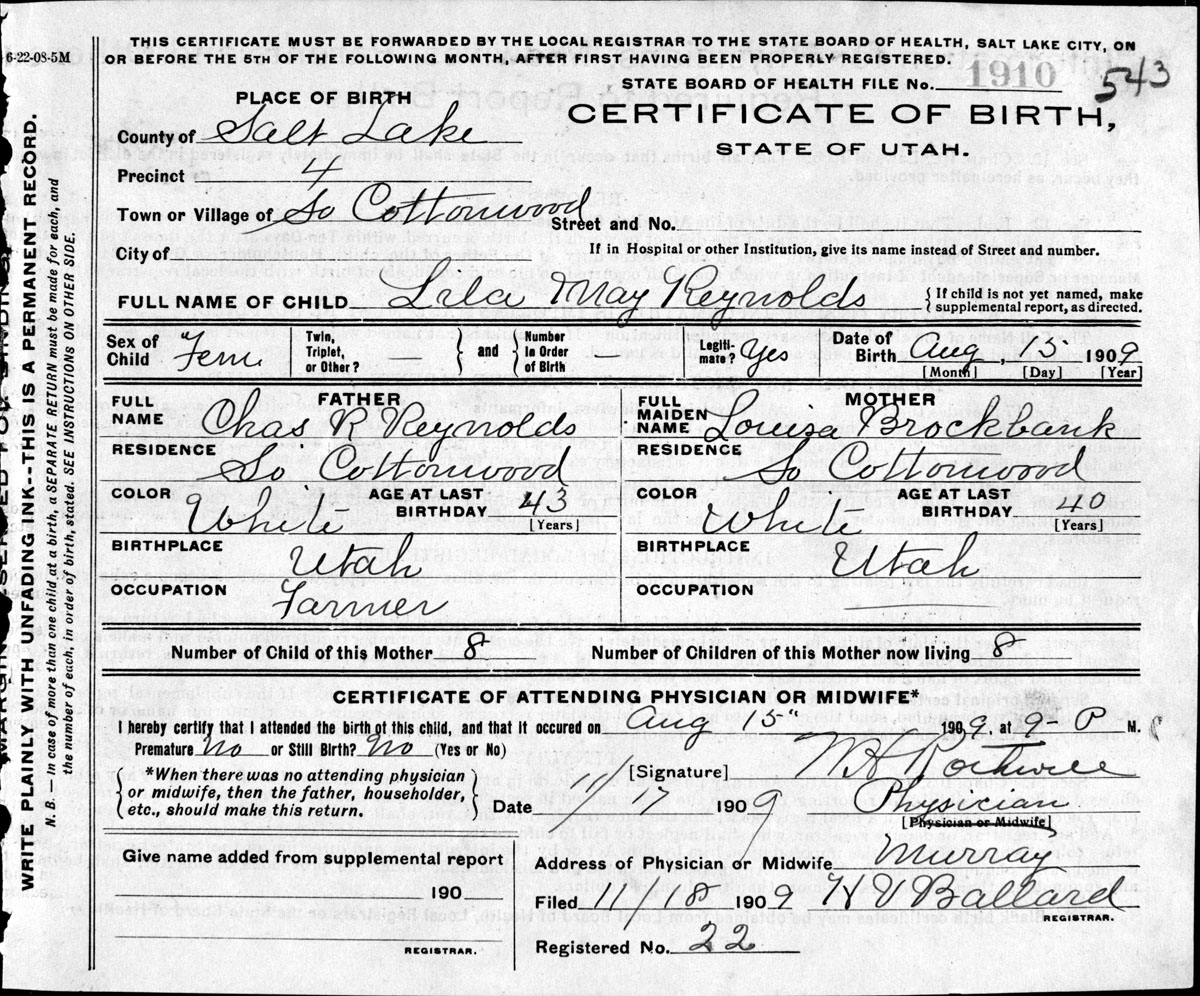 6-22-08-5M
THIS CERTIFICATE MUST BE FORWARDED BY THE LOCAL REGISTRAR TO THE STATE BOARD OF HEALTH, SALT LAKE CITY, ON
OR BEFORE THE 5TH OF THE FOLLOWING MONTH, AFTER FIRST HAVING BEEN PROPERLY REGISTERED.
STATE BOARD OF HEALTH FILE No. 1910 543
PLACE OF BIRTH
CERTIFICATE OF BIRTH,
STATE OF UTAH.
County of Salt Lake
Precinct 4
Town or Village of So Cottonwood Street and No.
City of If in Hospital or other Institution, give its name instead of Street and number.
FULL NAME OF CHILD Lila May Reynolds { If child is not yet named, make supplemental report, as directed.
Sex of Child Fem Twin, Triplet, or Other? } and { Number in Order of Birth Legiti-mate? Yes Date of Birth Aug 15 1909
[Month] [Day] [Year]
FATHER MOTHER
FULL NAME Chas R Reynolds FULL MAIDEN NAME Louisa Brockbank
RESIDENCE So Cottonwood RESIDENCE So Cottonwood
COLOR White AGE AT LAST BIRTHDAY 43 [Years] COLOR White AGE AT LAST BIRTHDAY 40 [Years]
BIRTHPLACE Utah BIRTHPLACE Utah
OCCUPATION Farmer OCCUPATION
Number of Child of this Mother 8 Number of Children of this Mother now living 8
CERTIFICATE OF ATTENDING PHYSICIAN OR MIDWIFE*
I hereby certify that I attended the birth of this child, and that it occured on Aug 15" 1909, at 9 P M.
Premature No or Still Birth? No (Yes or No)
[Signature] W H Rothwell
{ *When there was no attending physician or midwife, then the father, householder, etc., should make this return. }
Date 11/17 1909 Physician
[Physician or Midwife]
Give name added from supplemental report
Address of Physician or Midwife Murray
190
Filed 11/18 1909 H V Ballard
REGISTRAR.
REGISTRAR.
Registered No. 22
WRITE PLAINLY WITH UNFADING INK--THIS IS A PERMANENT RECORD.
N. B. — In case of more than one child at a birth, a SEPARATE RETURN must be made for each, and
the number of each, in order of birth, stated. SEE INSTRUCTIONS ON OTHER SIDE.